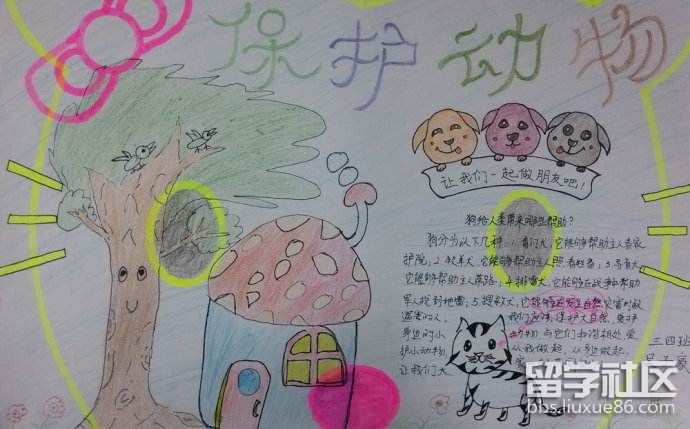 保护动物
让我们一起做朋友吧！
狗给人类带来哪些帮助？
狗分为以下几种：1.看门犬，它能够帮助主人看家
护院；2.牧羊犬，它能够帮助主人照看牲畜；3.导盲犬，
它能够帮助主人带路；4.排雷犬，它能够在战争中帮助
军人找到地雷；5.搜救犬，它能够在发生自然灾害时救
我们应该保护大自然，爱护
身边的小动物，与它们和谐相处，爱
护小动物，从我做起，从身边做起，
让我们大
三四班
留学社区
bbs.liuxue86.com